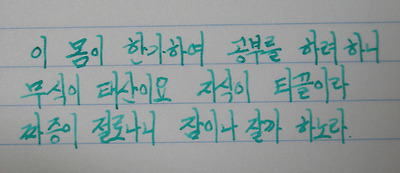 이 몸이 한가하여 공부를 하려 하니
무식이 태산이요 지식이 티끌이라
짜증이 절로나니 잠이나 잘까 하노라.